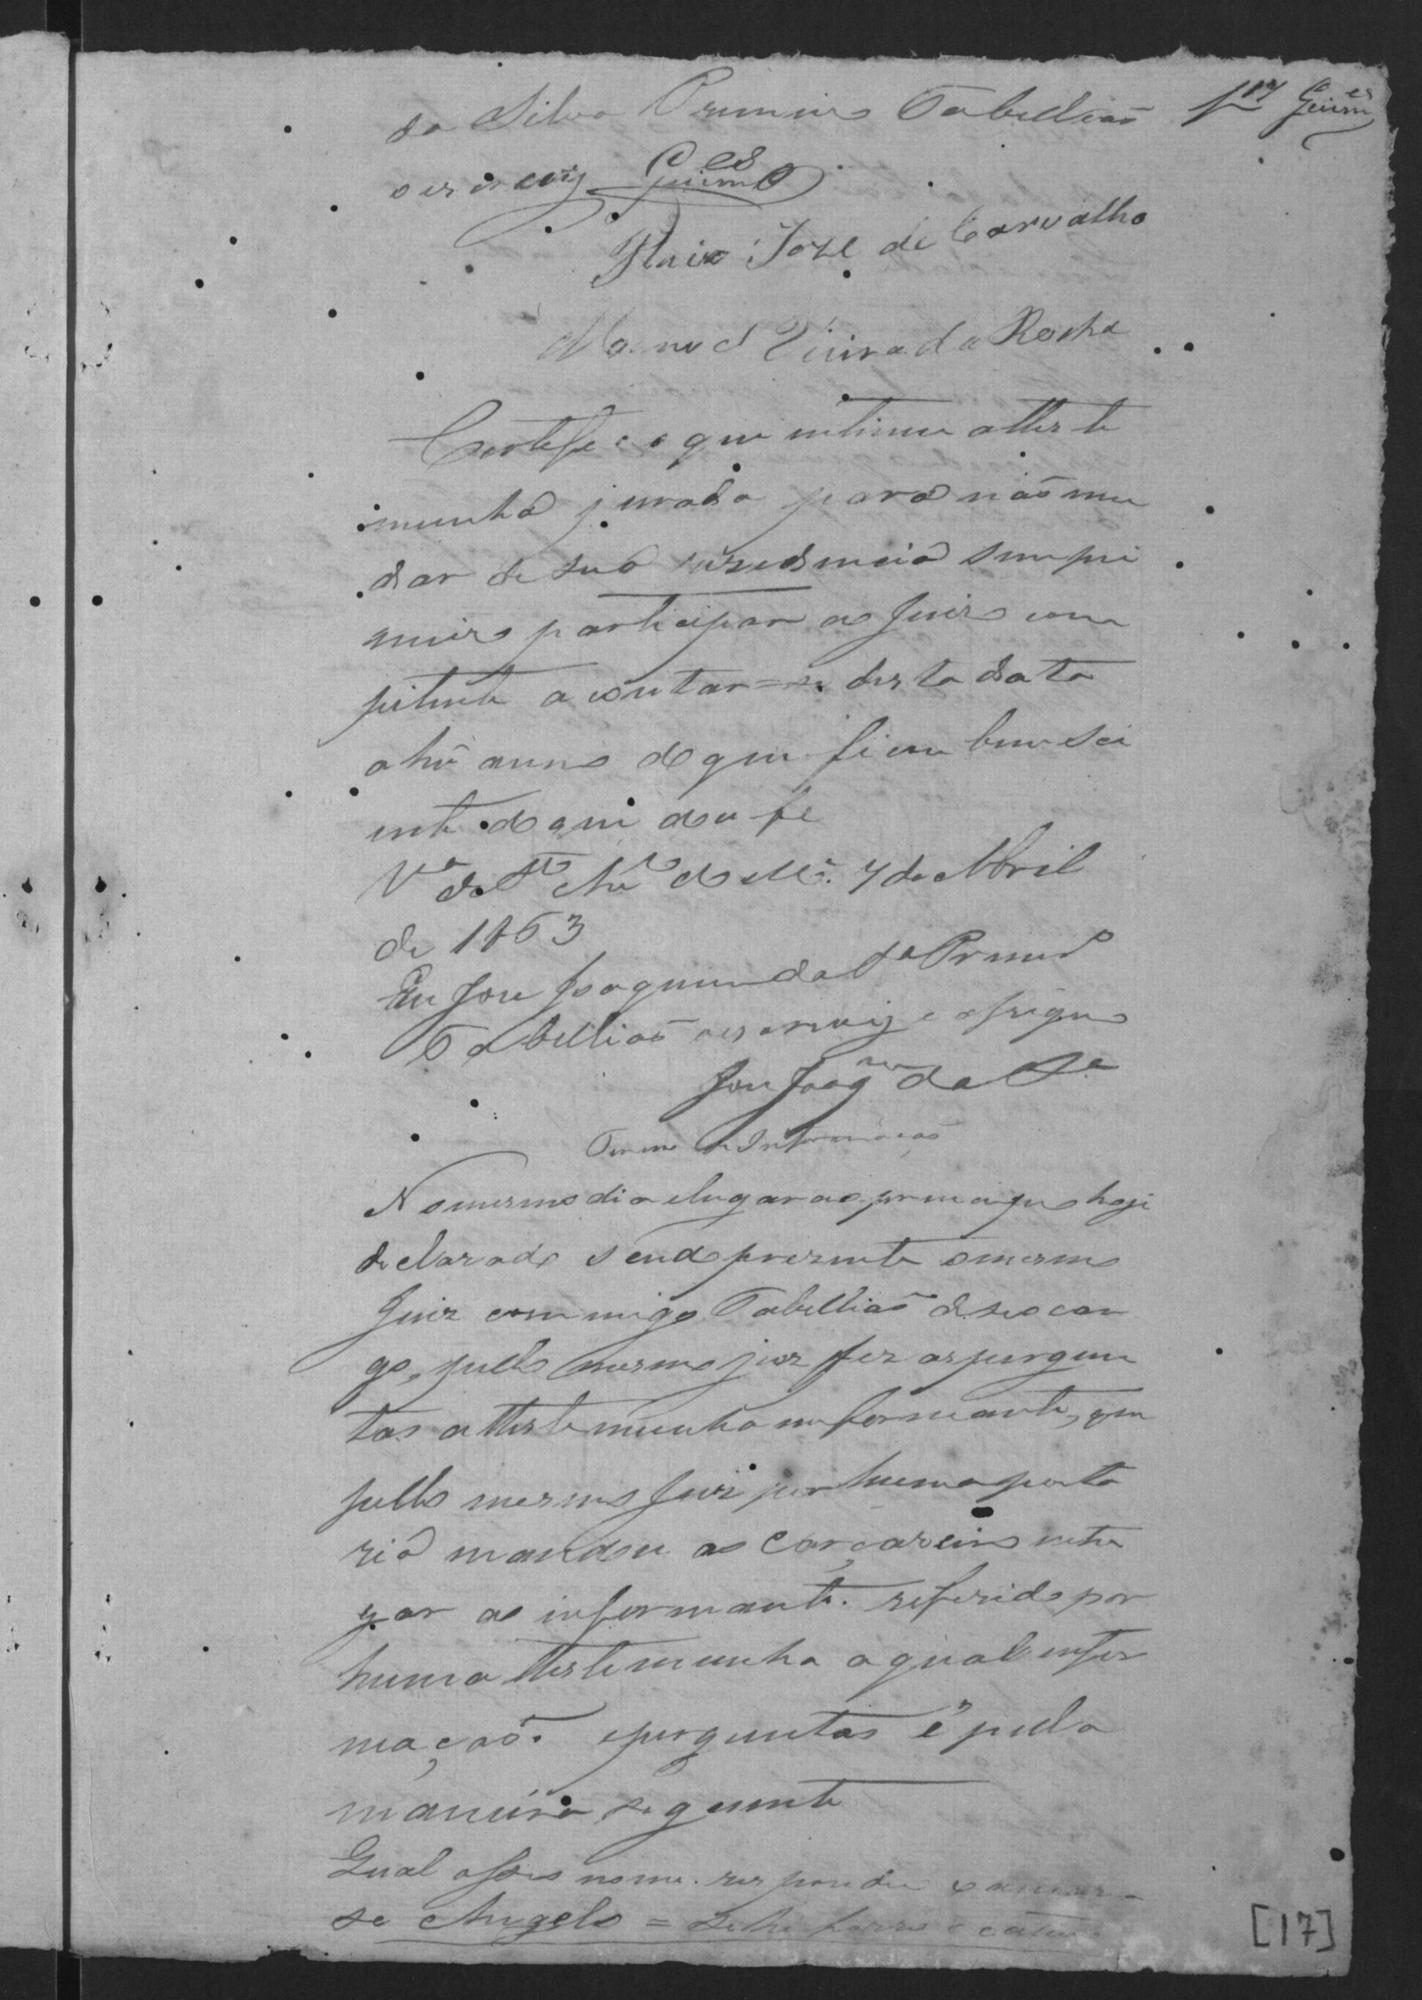 da Silva Primeiro Tabellião
o escrevy Guim.es
17 Guim.es
José de Carvalho
Manoel Vieira da Rocha
Certefico que intimei atteste
munha jurada para não mu
dar de sua rezedencia sem pri
meiro participar ao Juis com
pitente a contar=se desta data
a hũ anno do que ficou bem sci
ente do que dou fé
V.a de S.to An.to do M.e 7 de Abril
de 1863
Eu José Joaquim da S.a Prim.ro
Tabellião o escrevy e asigno
José Joaq.m da S.a
Termo de Informação
No mesmo dia e lugar ao principio hoje
declarado sendo prezente o mesmo
Juiz commigo Tabellião de seo car
go, pello mesmo juiz fez as pergun
tas a ttestemunha informante, que
pello mesmo Juiz por huma porta
ria mandou ao Carçareiro entre
gar ao informante referido por
huma ttestemunha a qual infor
mação e perguntas é pela
maneira seguente
Qual o seo nome. respondeu chamar-
se Angelo =
[17]